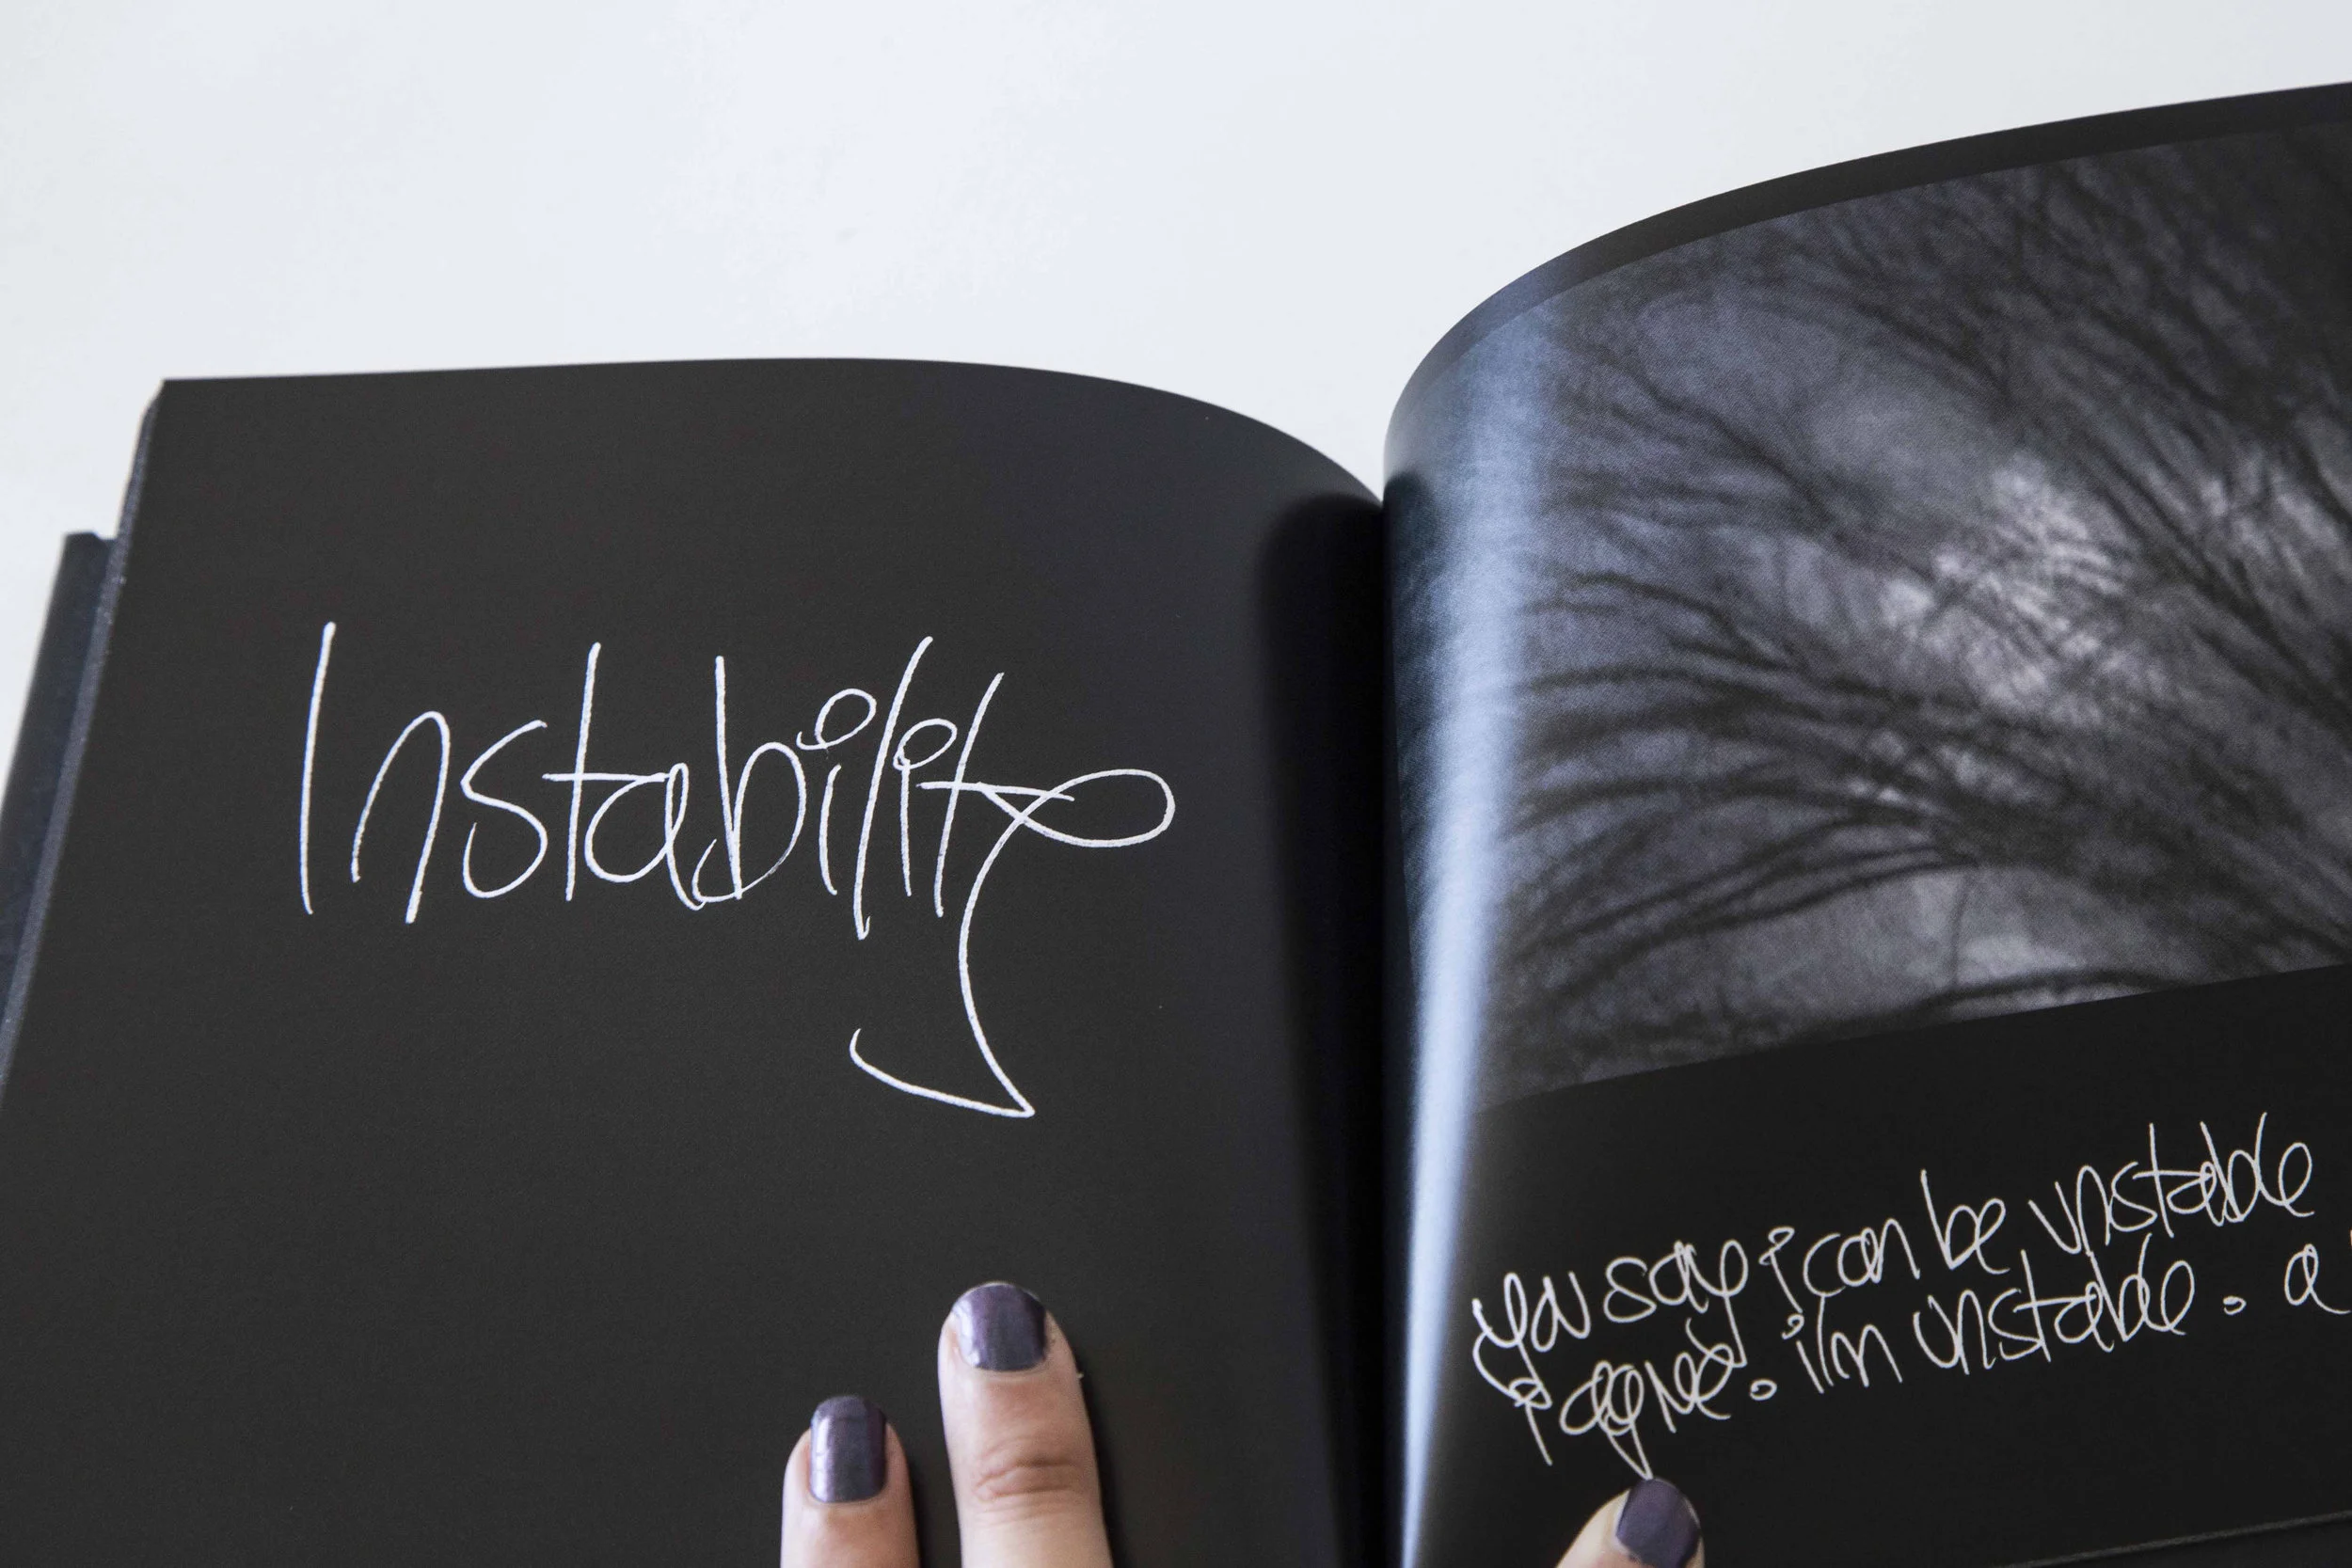 Instability
you say i can be unstable
i agree. i'm unstable. a